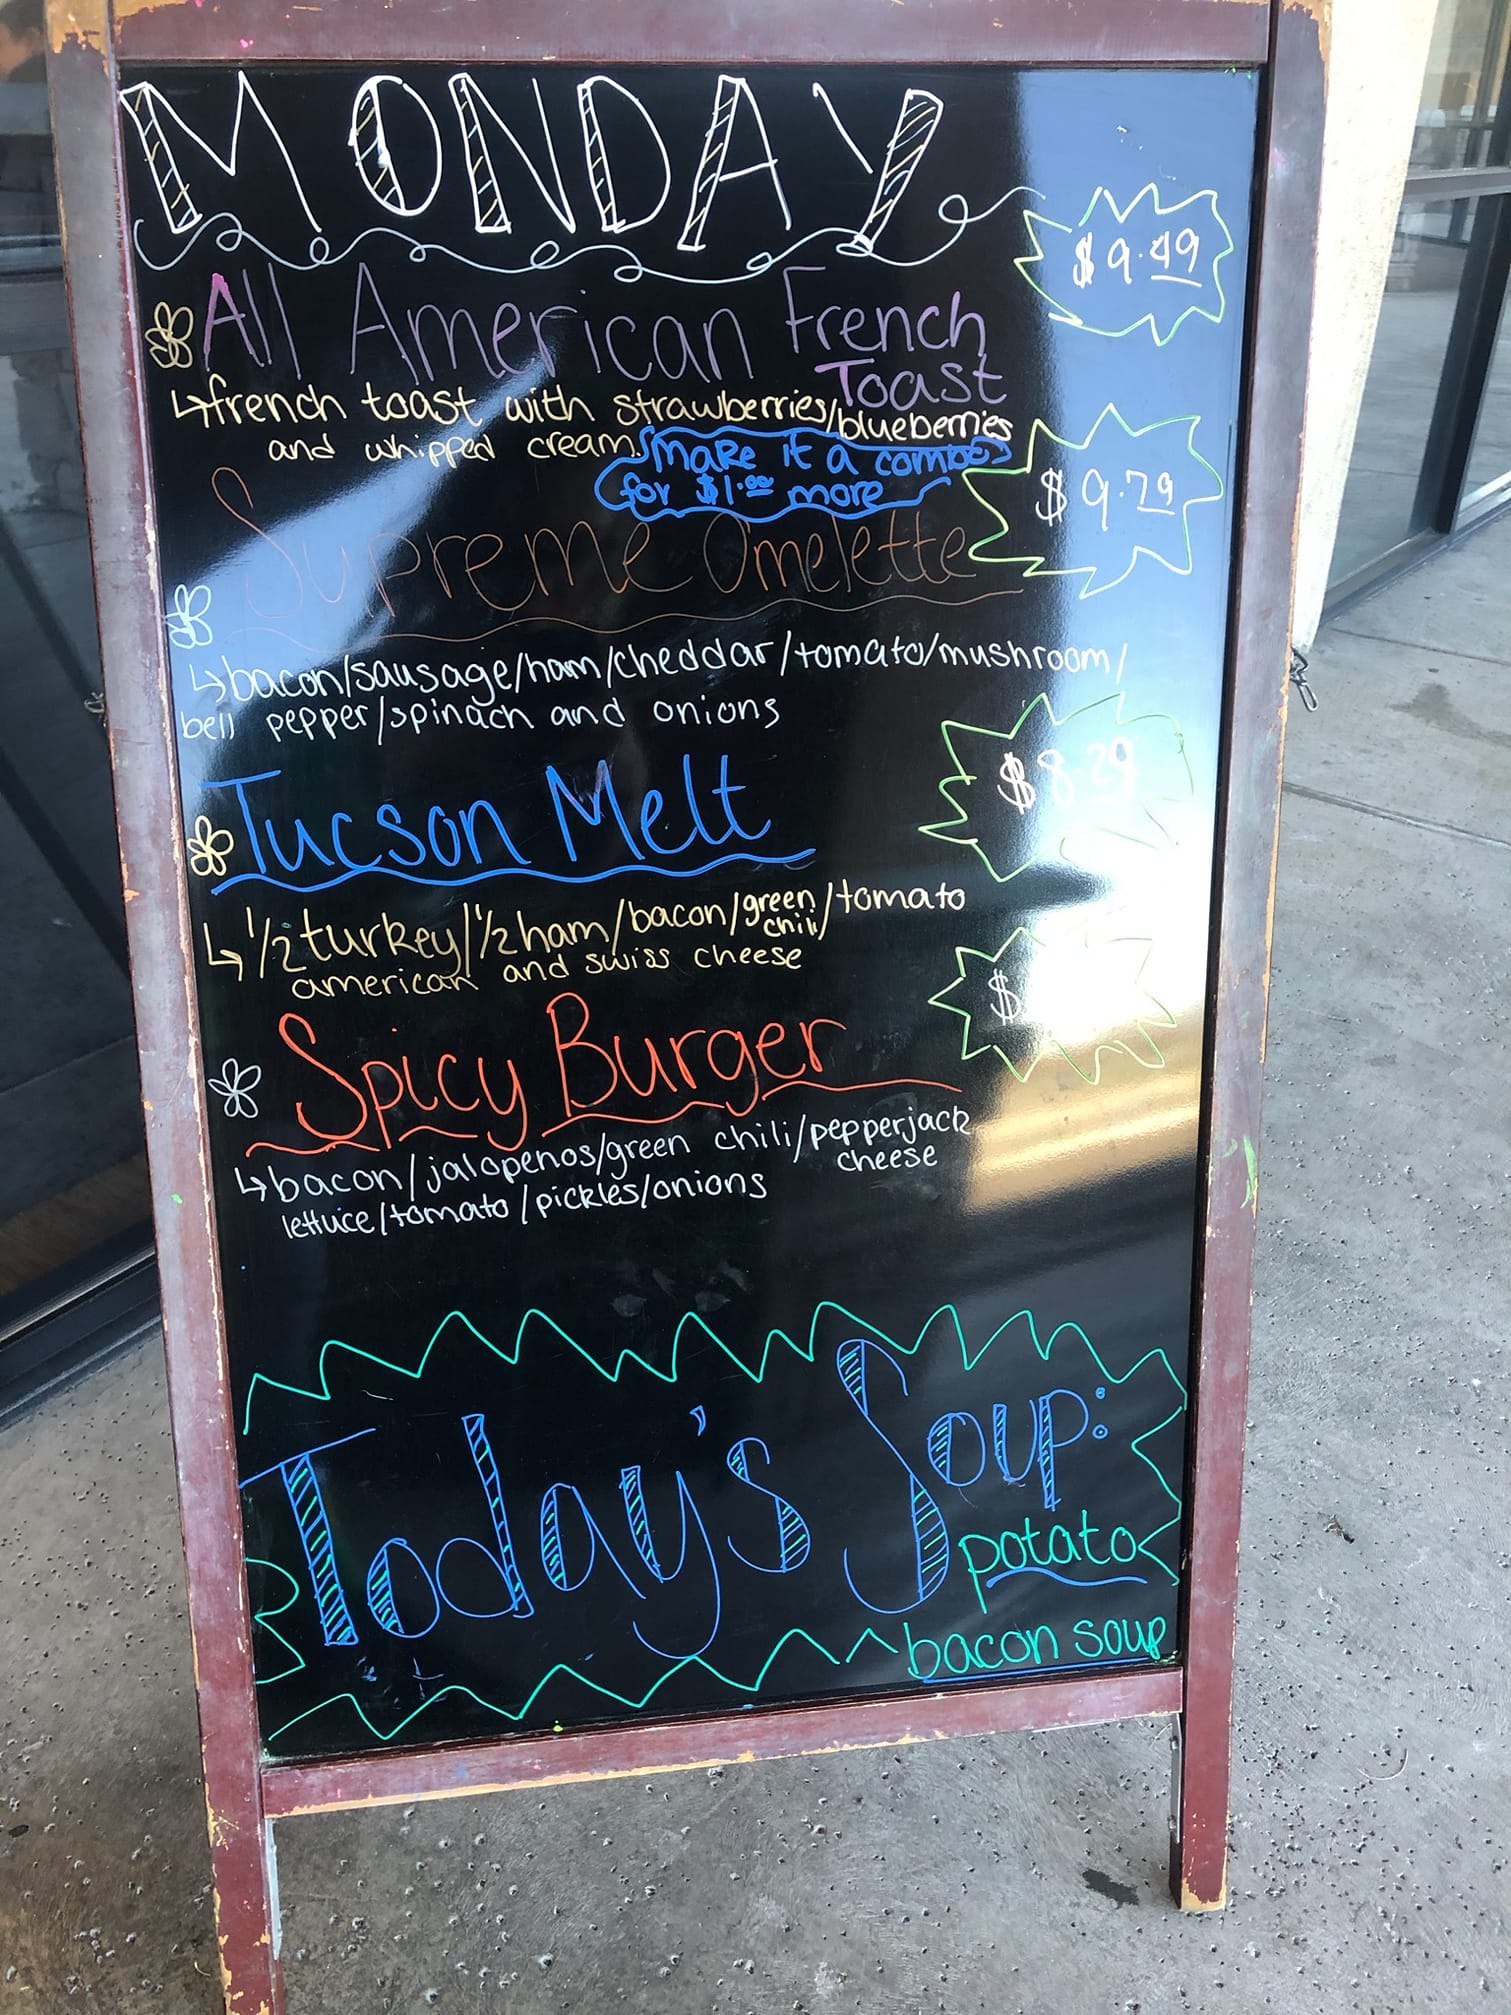 MONDAY
$9.49
All American French
Toast
french toast with strawberries/blueberries
and whipped cream.
make it a combo
for $1.00 more
$9.79
Supreme Omelette
bacon/sausage/ham/cheddar/tomato/mushroom/
bell pepper/spinach and onions
$8.29
Tucson Melt
1/2 turkey/1/2 ham/bacon/green chili/tomato
american and swiss cheese
$
Spicy Burger
bacon/jalopenos/green chili/pepperjack
cheese
lettuce/tomato/pickles/onions
Today's Soup:
potato
bacon soup